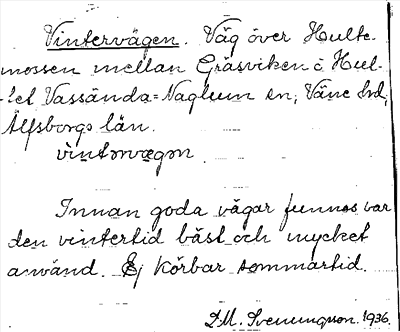 Vintervägen. Väg över Hulte-
mossen mellan Gräsviken o Hul-
tet Vassända=Naglum sn, Väne hd,
Älfsborgs län.
vintərvægən
Innan goda vägar funnos var
den vintertid bäst och mycket
använd. Ej körbar sommartid.
D.M. Svenungsson. 1936.